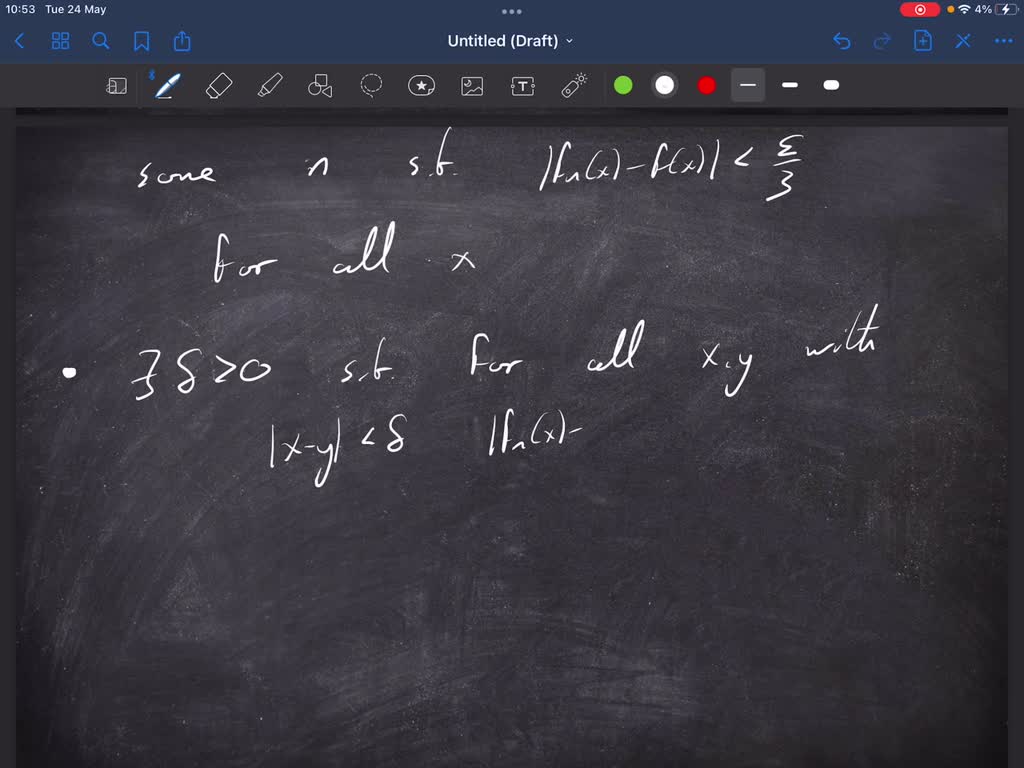 10:53 Tue 24 May
4%
Untitled (Draft)
some n s.t. |fn(x)-f(x)| < ε/3
for all x
• ∃ δ>0 s.t. for all x,y with
|x-y| < δ |fn(x)-